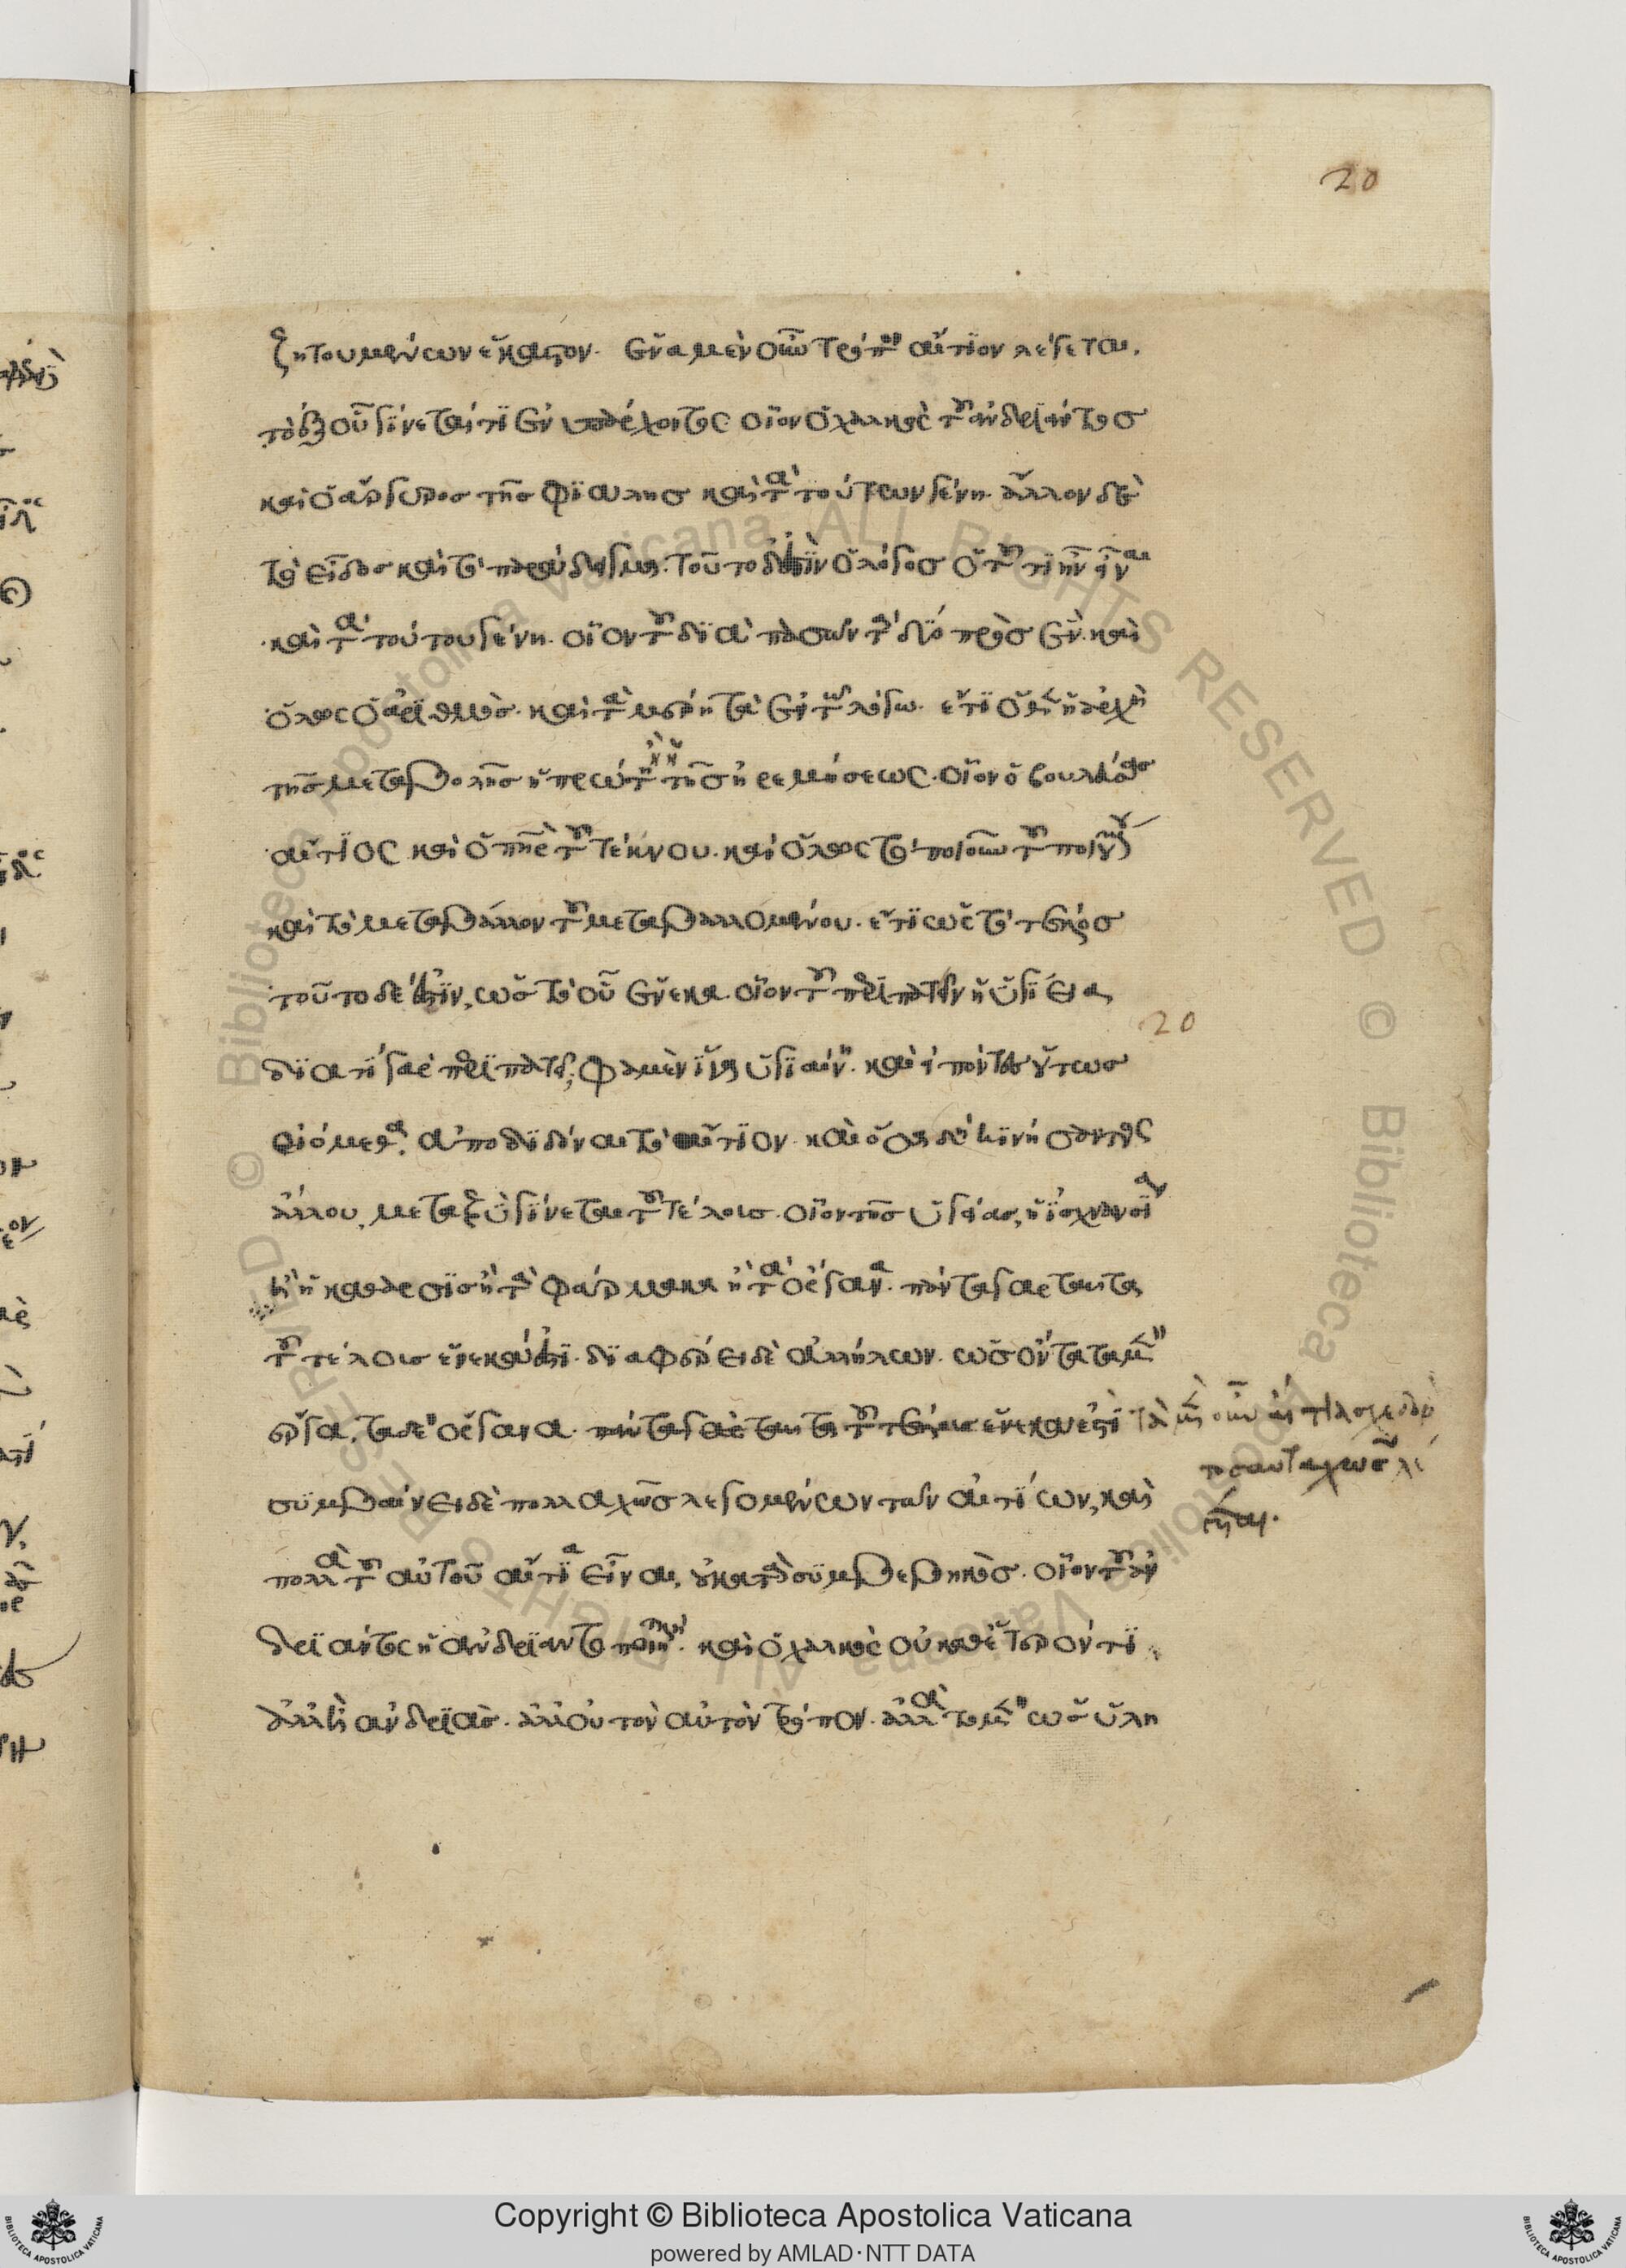 20
ζητουμένων ἕκαστον. ἕνα μὲν οὖν τρόπον αἴτιον λέγεται.
τὸ ἐξ οὗ γίνεταί τι ἐνυπάρχοντος οἷον ὁ χαλκὸς τοῦ ἀνδριάντος
καὶ ὁ ἄργυρος τῆς φιάλης καὶ τὰ τούτων γένη. ἄλλον δὲ
τὸ εἶδος καὶ τὸ παράδειγμα. τοῦτο δ' ἐστὶν ὁ λόγος ὁ τοῦ τί ἦν εἶναι
καὶ τὰ τούτου γένη. οἷον τοῦ διὰ πασῶν τὰ δύο πρὸς ἕν. καὶ
ὅλως ὁ ἀριθμὸς. καὶ τὰ μέρη τὰ ἐν τῷ λόγῳ. ἔτι ὅθεν ἡ ἀρχὴ
τῆς μεταβολῆς ἡ πρώτη ἢ ἡ τῆς ἠρεμήσεως. οἷον ὁ βουλεύσας
αἴτιος καὶ ὁ πατὴρ τοῦ τέκνου. καὶ ὅλως τὸ ποιοῦν τοῦ ποιουμένου
καὶ τὸ μεταβάλλον τοῦ μεταβαλλομένου. ἔτι ὡς τὸ τέλος
τοῦτο δέ ἐστιν, ὡς τὸ οὗ ἕνεκα. οἷον τοῦ περιπατεῖν ἡ ὑγίεια,
20
διατί γὰρ περιπατεῖ; φαμὲν ἵνα ὑγιαίνῃ. καὶ εἰπόντες οὕτως
οἰόμεθα ἀποδιδόναι τὸ αἴτιον. καὶ ὅσα δὲ κινήσαντος
ἄλλου, μεταξὺ γίνεται τοῦ τέλους. οἷον τῆς ὑγείας, ἡ ἰσχνασία
ἢ ἡ κάθαρσις ἢ τὰ φάρμακα ἢ τὰ ὄργανα. πάντα γὰρ ταῦτα
τοῦ τέλους ἕνεκά ἐστι. διαφέρει δὲ ἀλλήλων. ὡς ὄντα τὰ μὲν
ἔργα, τὰ δ' ὄργανα. πάντα γὰρ ταῦτα τοῦ τέλους ἕνεκα ἐστὶ τὰ μὲν οὖν αἴτια σχεδὸν
τοσαυταχῶς λέ
γεται.
συμβαίνει δὲ πολλαχῶς λεγομένων τῶν αἰτίων, καὶ
πολλὰ τοῦ αὐτοῦ αἴτια εἶναι, οὐ κατὰ συμβεβηκὸς. οἷον τοῦ ἀν
δριάντος ἡ ἀνδριαντοποιητικὴ. καὶ ὁ χαλκὸς οὐ καθ' ἕτερόν τι
ἀλλ' ᾗ ἀνδριὰς. ἀλλ' οὐ τὸν αὐτὸν τρόπον. ἀλλὰ τὸ μὲν ὡς ὕλη
Copyright © Biblioteca Apostolica Vaticana
powered by AMLAD·NTT DATA